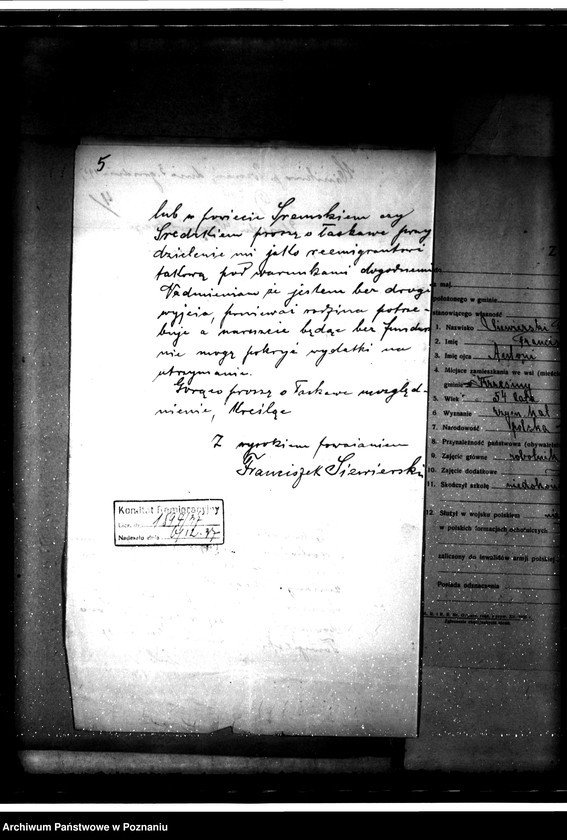 5
lub w powiecie Śremskiem czy
Średzkiem proszę o łaskawe przy
dzielenie mi jako reemigrantowi
takową pod warunkami dogodnemi
Nadmieniam że jestem bez drogi
wyjścia, ponieważ rodzina potrze-
buje a nareszcie będąc bez fundu
nie mogę pokryć wydatki na
utrzymanie.
Gorąco proszę o łaskawe uwzględ-
nienie, kreślę
Z wysokiem poważaniem
Franciszek Siewierski
Komitet Remigracyjny
L.dz.
Nadeszło dnia 6/12.37
z maj.
położonego w gminie
stanowiącego własność
1. Nazwisko Siewierski
2. Imię Francis
3. Imię ojca Antoni
4. Miejsce zamieszkania we wsi (mieście
gminie
5. Wiek 54 lata
6. Wyznanie rzym. kat
7. Narodowość polska
8. Przynależność państwowa (obywatel
9. Zajęcie główne robotnik
10. Zajęcie dodatkowe
11. Skończył szkołę
12. Służył w wojsku polskiem
w polskich formacjach ochotniczych
zaliczony do inwalidów armji polskiej
Posiada odznaczenie
Archiwum Państwowe w Poznaniu